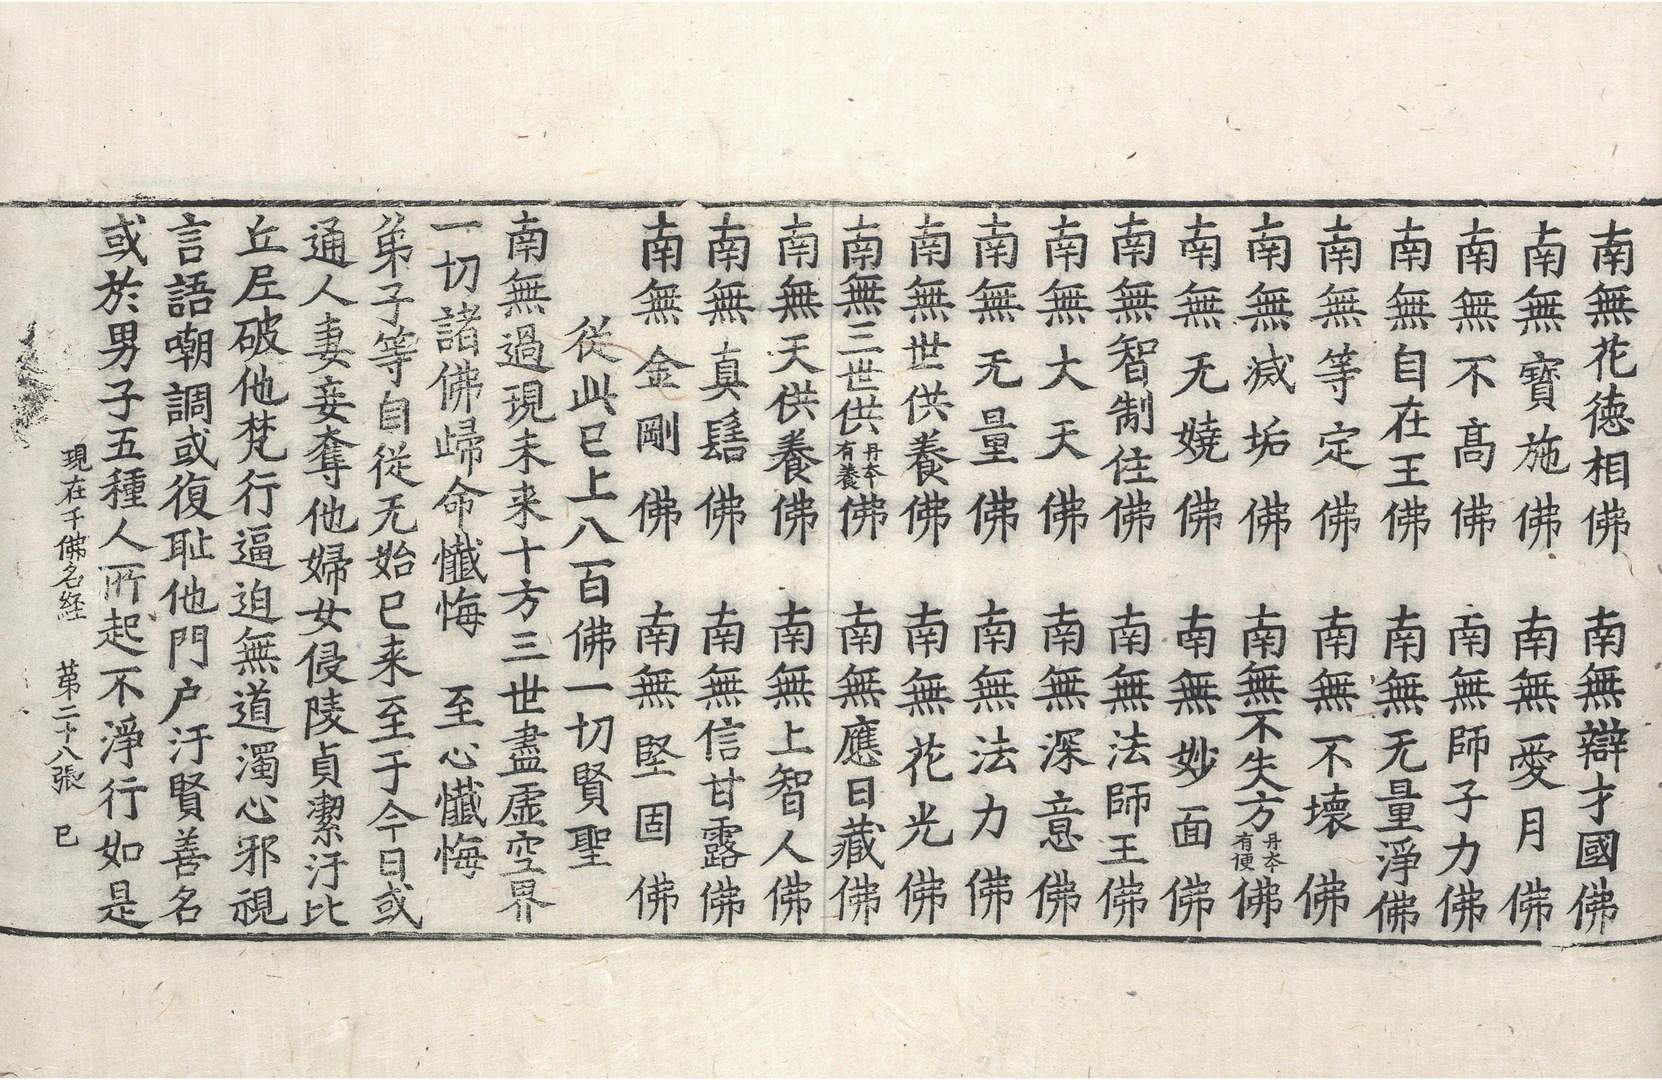 南無花德相佛　南無辯才國佛
南無寶施佛　南無愛月佛
南無不髙佛　南無師子力佛
南無自在王佛　南無无量淨佛
南無等定佛　南無不壞佛
南無滅垢佛　南無不失方丹夲有便佛
南無无嬈佛　南無妙面佛
南無智制住佛　南無法師王佛
南無大天佛　南無深意佛
南無无量佛　南無法力佛
南無世供養佛　南無花光佛
南無三世供丹夲有養佛　南無應日藏佛
南無天供養佛　南無上智人佛
南無真髻佛　南無信甘露佛
南無金剛佛　南無堅固佛
從此已上八百佛一切賢聖
南無過現未来十方三世盡虛空界
一切諸佛歸命懺悔　至心懺悔
弟子等自從无始已来至于今日或
通人妻妾奪他婦女侵陵貞潔汙比
丘尼破他梵行逼迫無道濁心邪視
言語嘲調或復恥他門户汙賢善名
或於男子五種人所起不淨行如是
現在千佛名経　第二十八張　巳